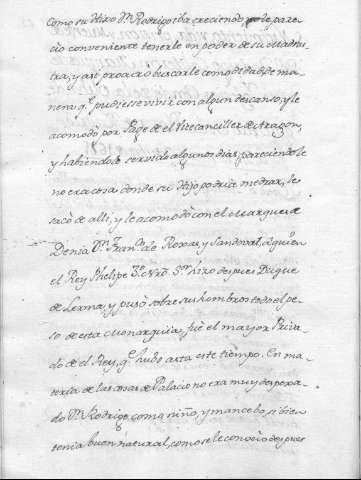 como su Hixo Dn. Rodrigo iba creciendo, no le pare-
cio conveniente tenerle en poder de su Madras-
tra, y asi procurò buscarle comodidad de ma-
nera q.e pudiesse vivir con algun descanso, y le
acomodò por Page de el Vicecanciller de Aragon,
y habiendole servido algunos dias, pareciendole
no era cosa donde su Hijo podria medrar, le
sacò de alli, y le acomodò con el Marques de
Denia Dn. Fran.co de Roxas, y Sandoval, à quien
el Rey Phelipe 3.o Nrô S.or hizo despues Duque
de Lerma, y pusò sobre sus hombros todo el pe-
so de esta Monarquia, y fuè el mayor Priva-
do de el Rey, q.e hubo asta este tiempo. En ma-
teria de las cosas de Palacio no era muy despera-
do Dn. Rodrigo, como niño, y mancebo, si bien
tenia buen natural, como se le conociò despues